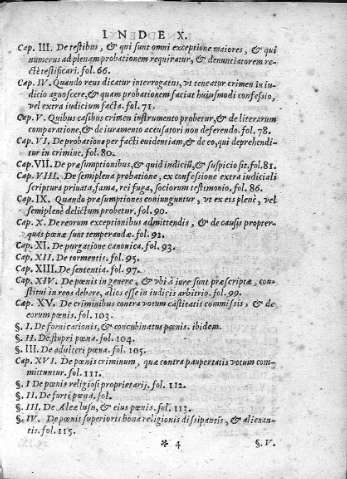 INDEX.
Cap. III. De testibus, & qui sunt omni exceptione maiores, & qui
numerus ad plenam probationem requiratur, & denuntiatorem re-
cte testificari. fol. 66.
Cap. IV. Quando reus dicatur interrogatus, vt teneatur crimen in iu-
dicio agnoscere, & quam probationem faciat huiusmodi confessio,
vel extra iudicium facta. fol. 71.
Cap. V. Quibus casibus crimen instrumento probetur, & de literarum
comparatione, & de iuramento accusatori non deferendo. fol. 78.
Cap. VI. De probatione per facti euidentiam, & de eo, qui deprehendi-
tur in crimine. fol. 80.
Cap. VII. De præsumptionibus, & quid indiciũ, & suspicio sit. fol. 81.
Cap. VIII. De semiplena probatione, ex confessione extra iudiciali
scriptura priuata, fama, rei fuga, sociorum testimonio. fol. 86.
Cap. IX. Quando præsumptiones coniunguntur, vt ex eis plenè, vel
semiplenè delictum probetur. fol. 90.
Cap. X. De reorum exceptionibus admittendis, & de causis propter-
quas pœnæ sunt temperandæ. fol. 92.
Cap. XI. De purgatione canonica. fol. 93.
Cap. XII. De tormentis. fol. 95.
Cap. XIII. De sententia. fol. 97.
Cap. XIV. De pœnis in genere, & vbi à iure sunt præscriptæ, con-
stitui in reos debere, aliàs esse in iudicis arbitrio. fol. 99.
Cap. XV. De criminibus contra votum castitatis commissis, & de
eorum pœnis. fol. 103.
§. I. De fornicationis, & concubinatus pœnis. ibidem.
§. II. De stupri pœna. fol. 104.
§. III. De adulterì pœna. fol. 105.
Cap. XVI. De pœnis criminum, quæ contra paupertatis votum com-
mittuntur. fol. 111.
§. I De pœnis religiosi proprietarij. fol. 112.
§. II. De furti pœna. fol.
§. III. De Aleæ lusu, & eius pœnis. fol. 113.
§. IV. De pœnis superioris bona religionis dissipantis, & alienan-
tis. fol. 115.
* 4 §. V.